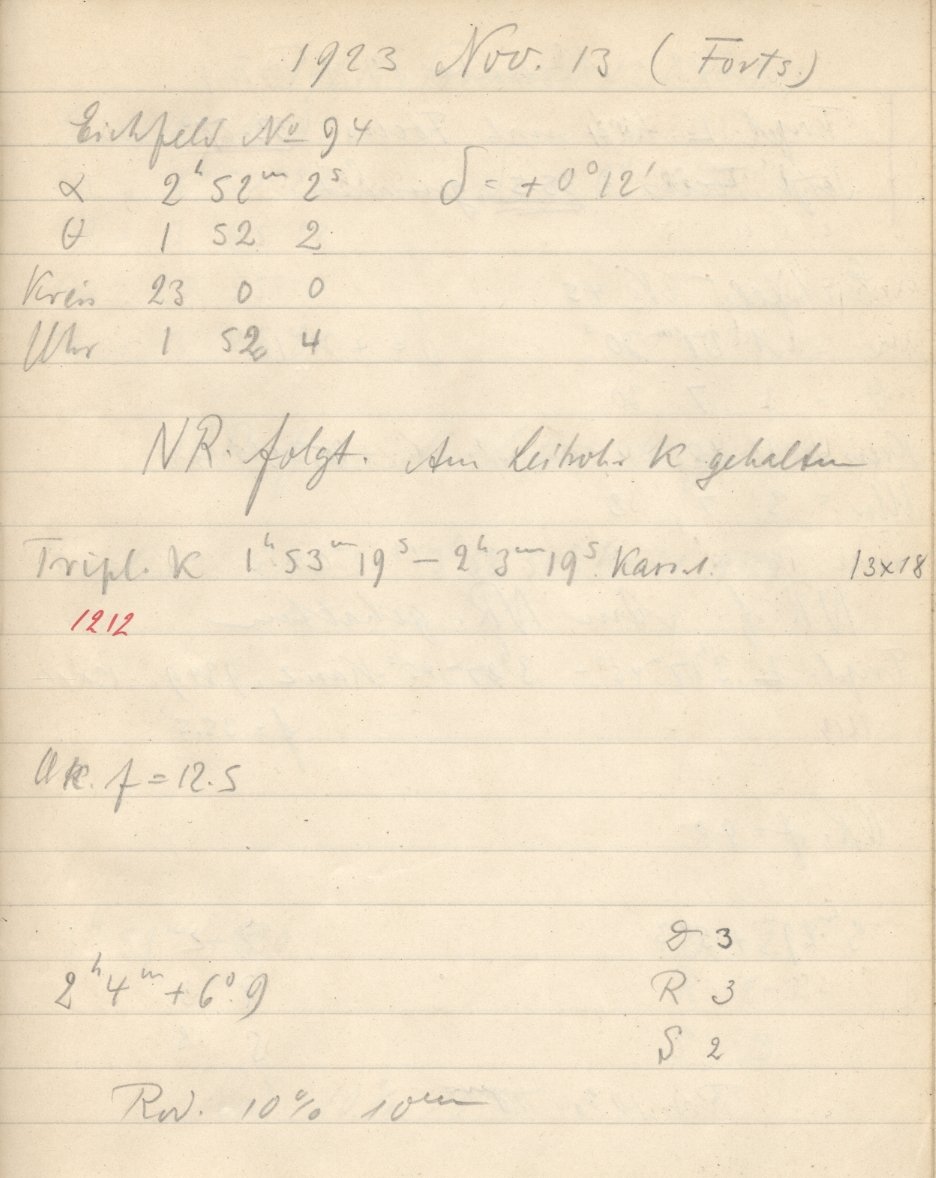 1923 Nov. 13 (Forts.)
Eichfeld No 94
α 2ʰ 52ᵐ 2ˢ δ = +0°12'
θ 1 52 2
Kreis 23 0 0
Uhr 1 52 4
NR. folgt. Am Leitrohr K gehalten
Tripl. K 1ʰ 53ᵐ 19ˢ – 2ʰ 3ᵐ 19ˢ. 13x18
1212
f = 12.5
3
2ʰ 4ᵐ + 6°.9 R 3
S 2
Rod. 10% 10ᵐ